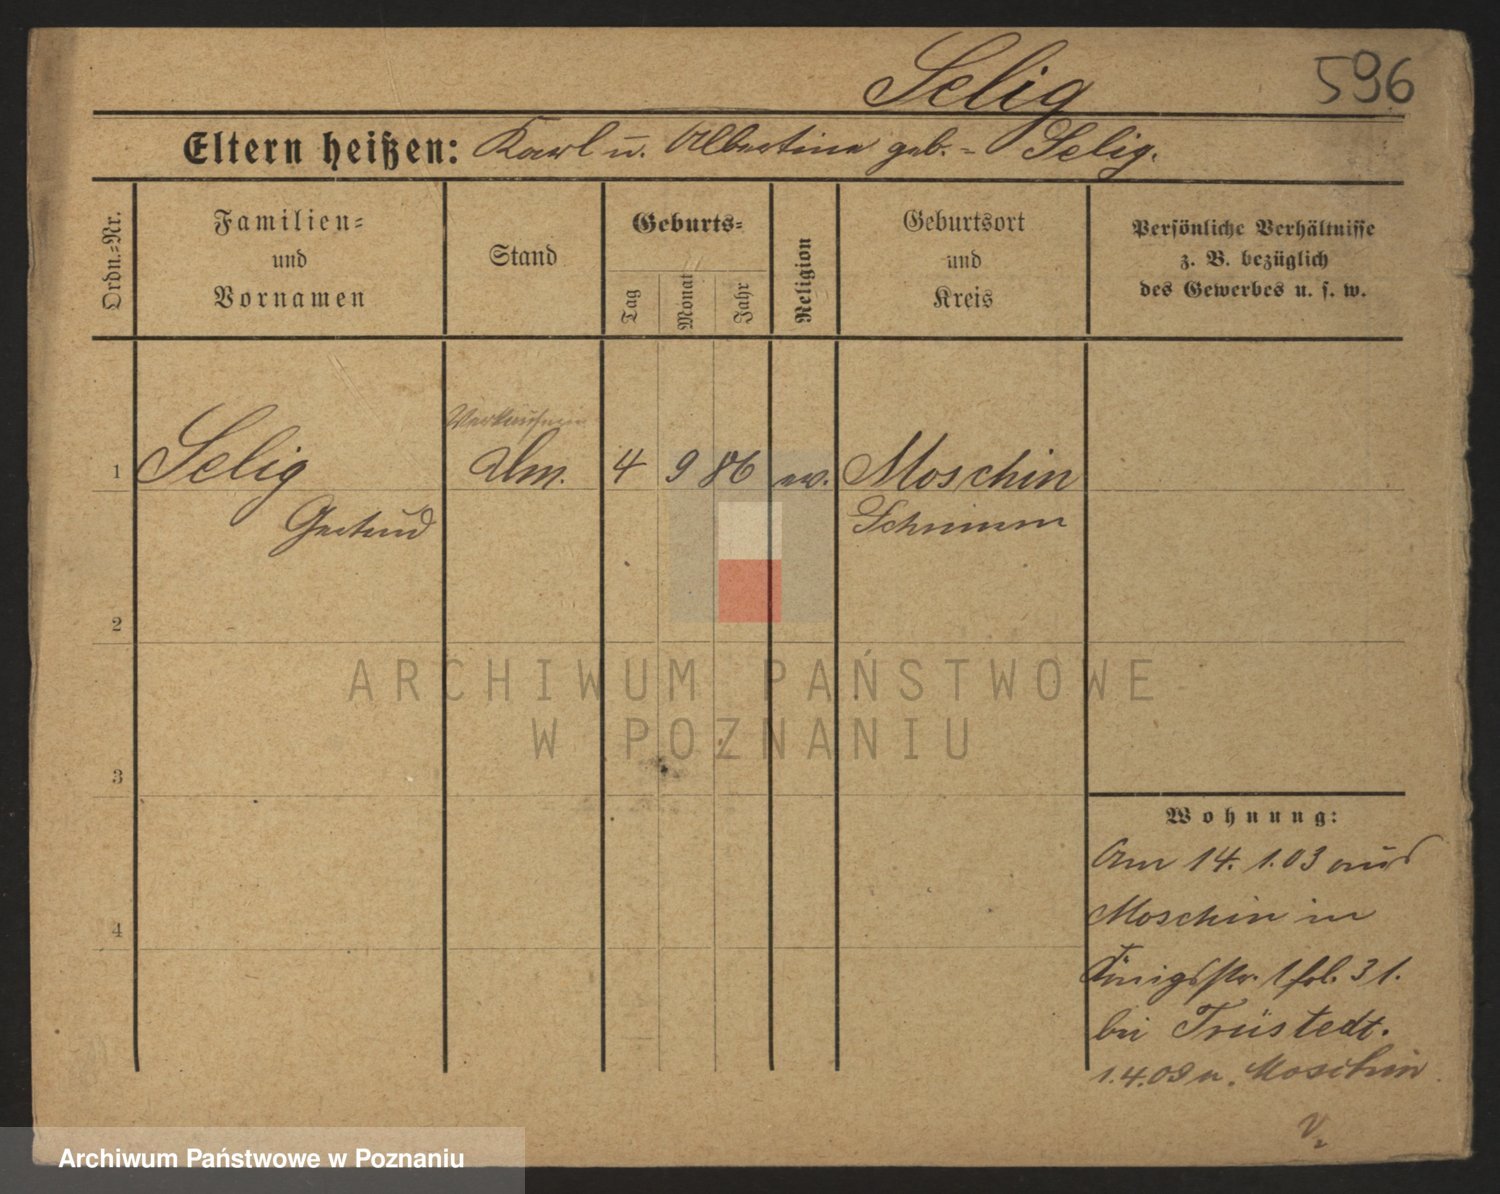 Selig
596
Eltern heißen: Karl u. Albertine geb. = Selig.
Ordn.-Nr.
Familien-
und
Vornamen
Stand
Geburts-
Tag
Monat
Jahr
Religion
Geburtsort
und
Kreis
Persönliche Verhältnisse
z. B. bezüglich
des Gewerbes u. s. w.
Verkäuferin
1 Selig 4 9 86 ev. Moschin
Gertrud Schrimm
2
ARCHIWUM PAŃSTWOWE
W POZNANIU
3
Wohnung:
Am 14. 1. 03 aus
4
Moschin in
Königsstr. 31.
bei Trüstedt.
1.4.03 n. Moschin
Archiwum Państwowe w Poznaniu